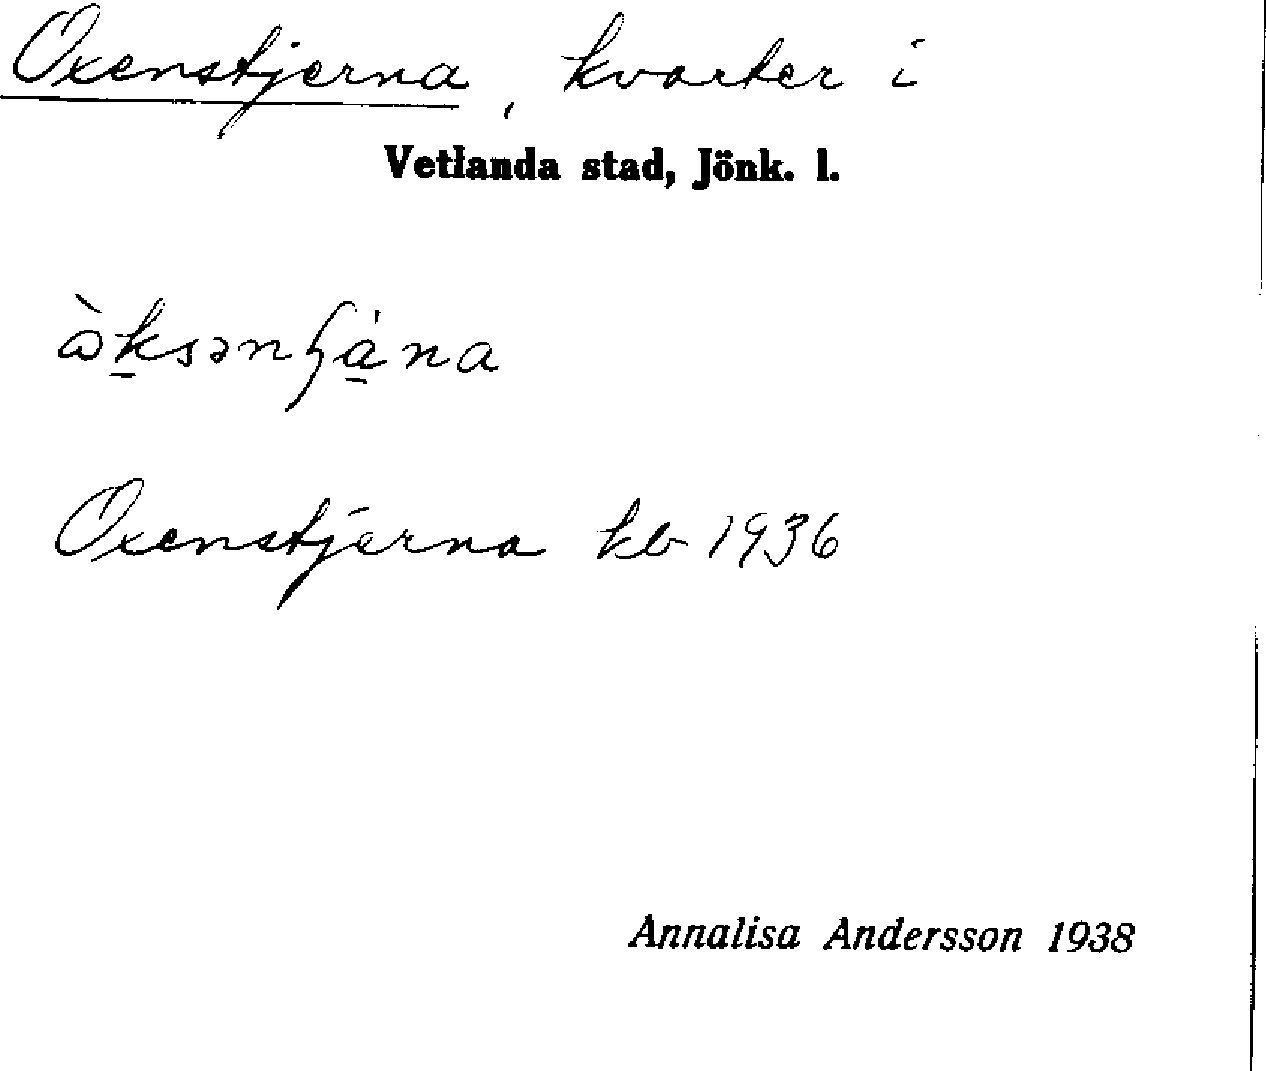 Oxenstjerna, kvarter i
Vetlanda stad, Jönk. l.
Oxenstjerna kb 1936
Annalisa Andersson 1938